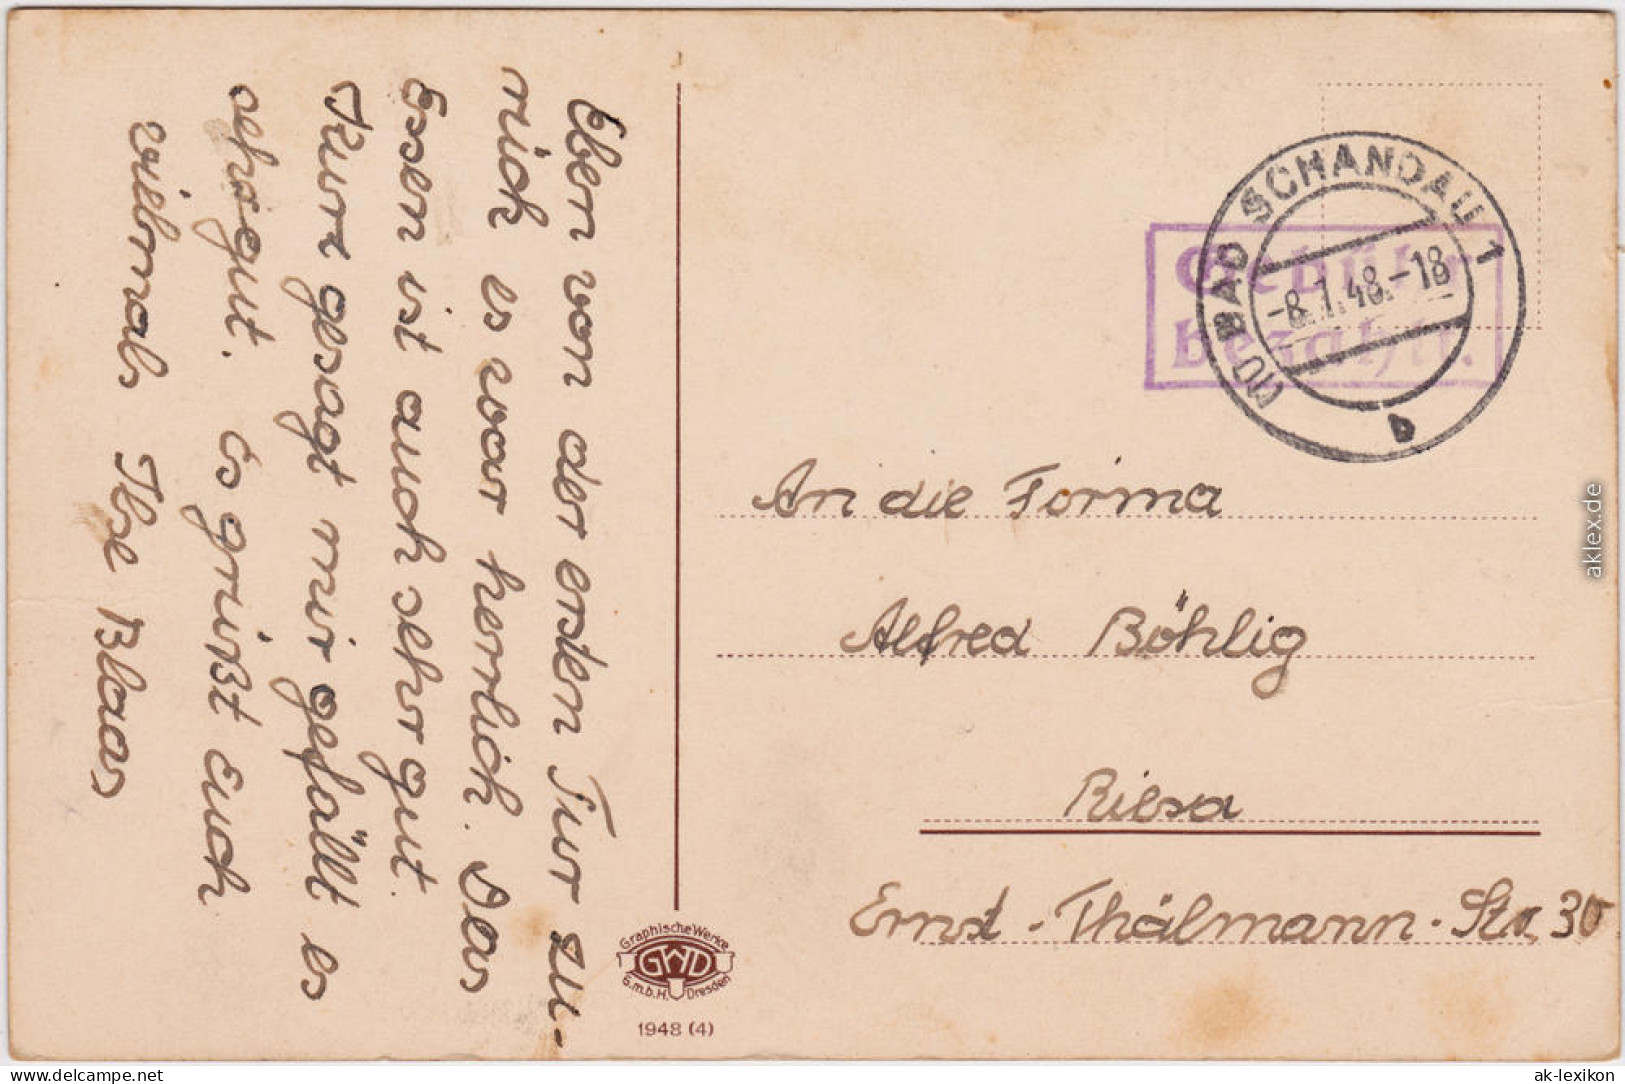 Eben von der ersten Tur zu-
rück es war herrlich. Das
Essen ist auch sehr gut.
Kurz gesagt mir gefällt es
sehr gut. Es grüßt Euch
vielmals Ihre Blaas
Gebühr
bezahlt.
(10) BAD SCHANDAU 1
-8.7.48.-18
b
An die Firma
Alfred Böhlig
Riesa
Ernst-Thälmann-Str. 30
Graphische Werke
GWD
G.m.b.H. Dresden
1948 (4)
aklex.de
delcampe.net
ak-lexikon